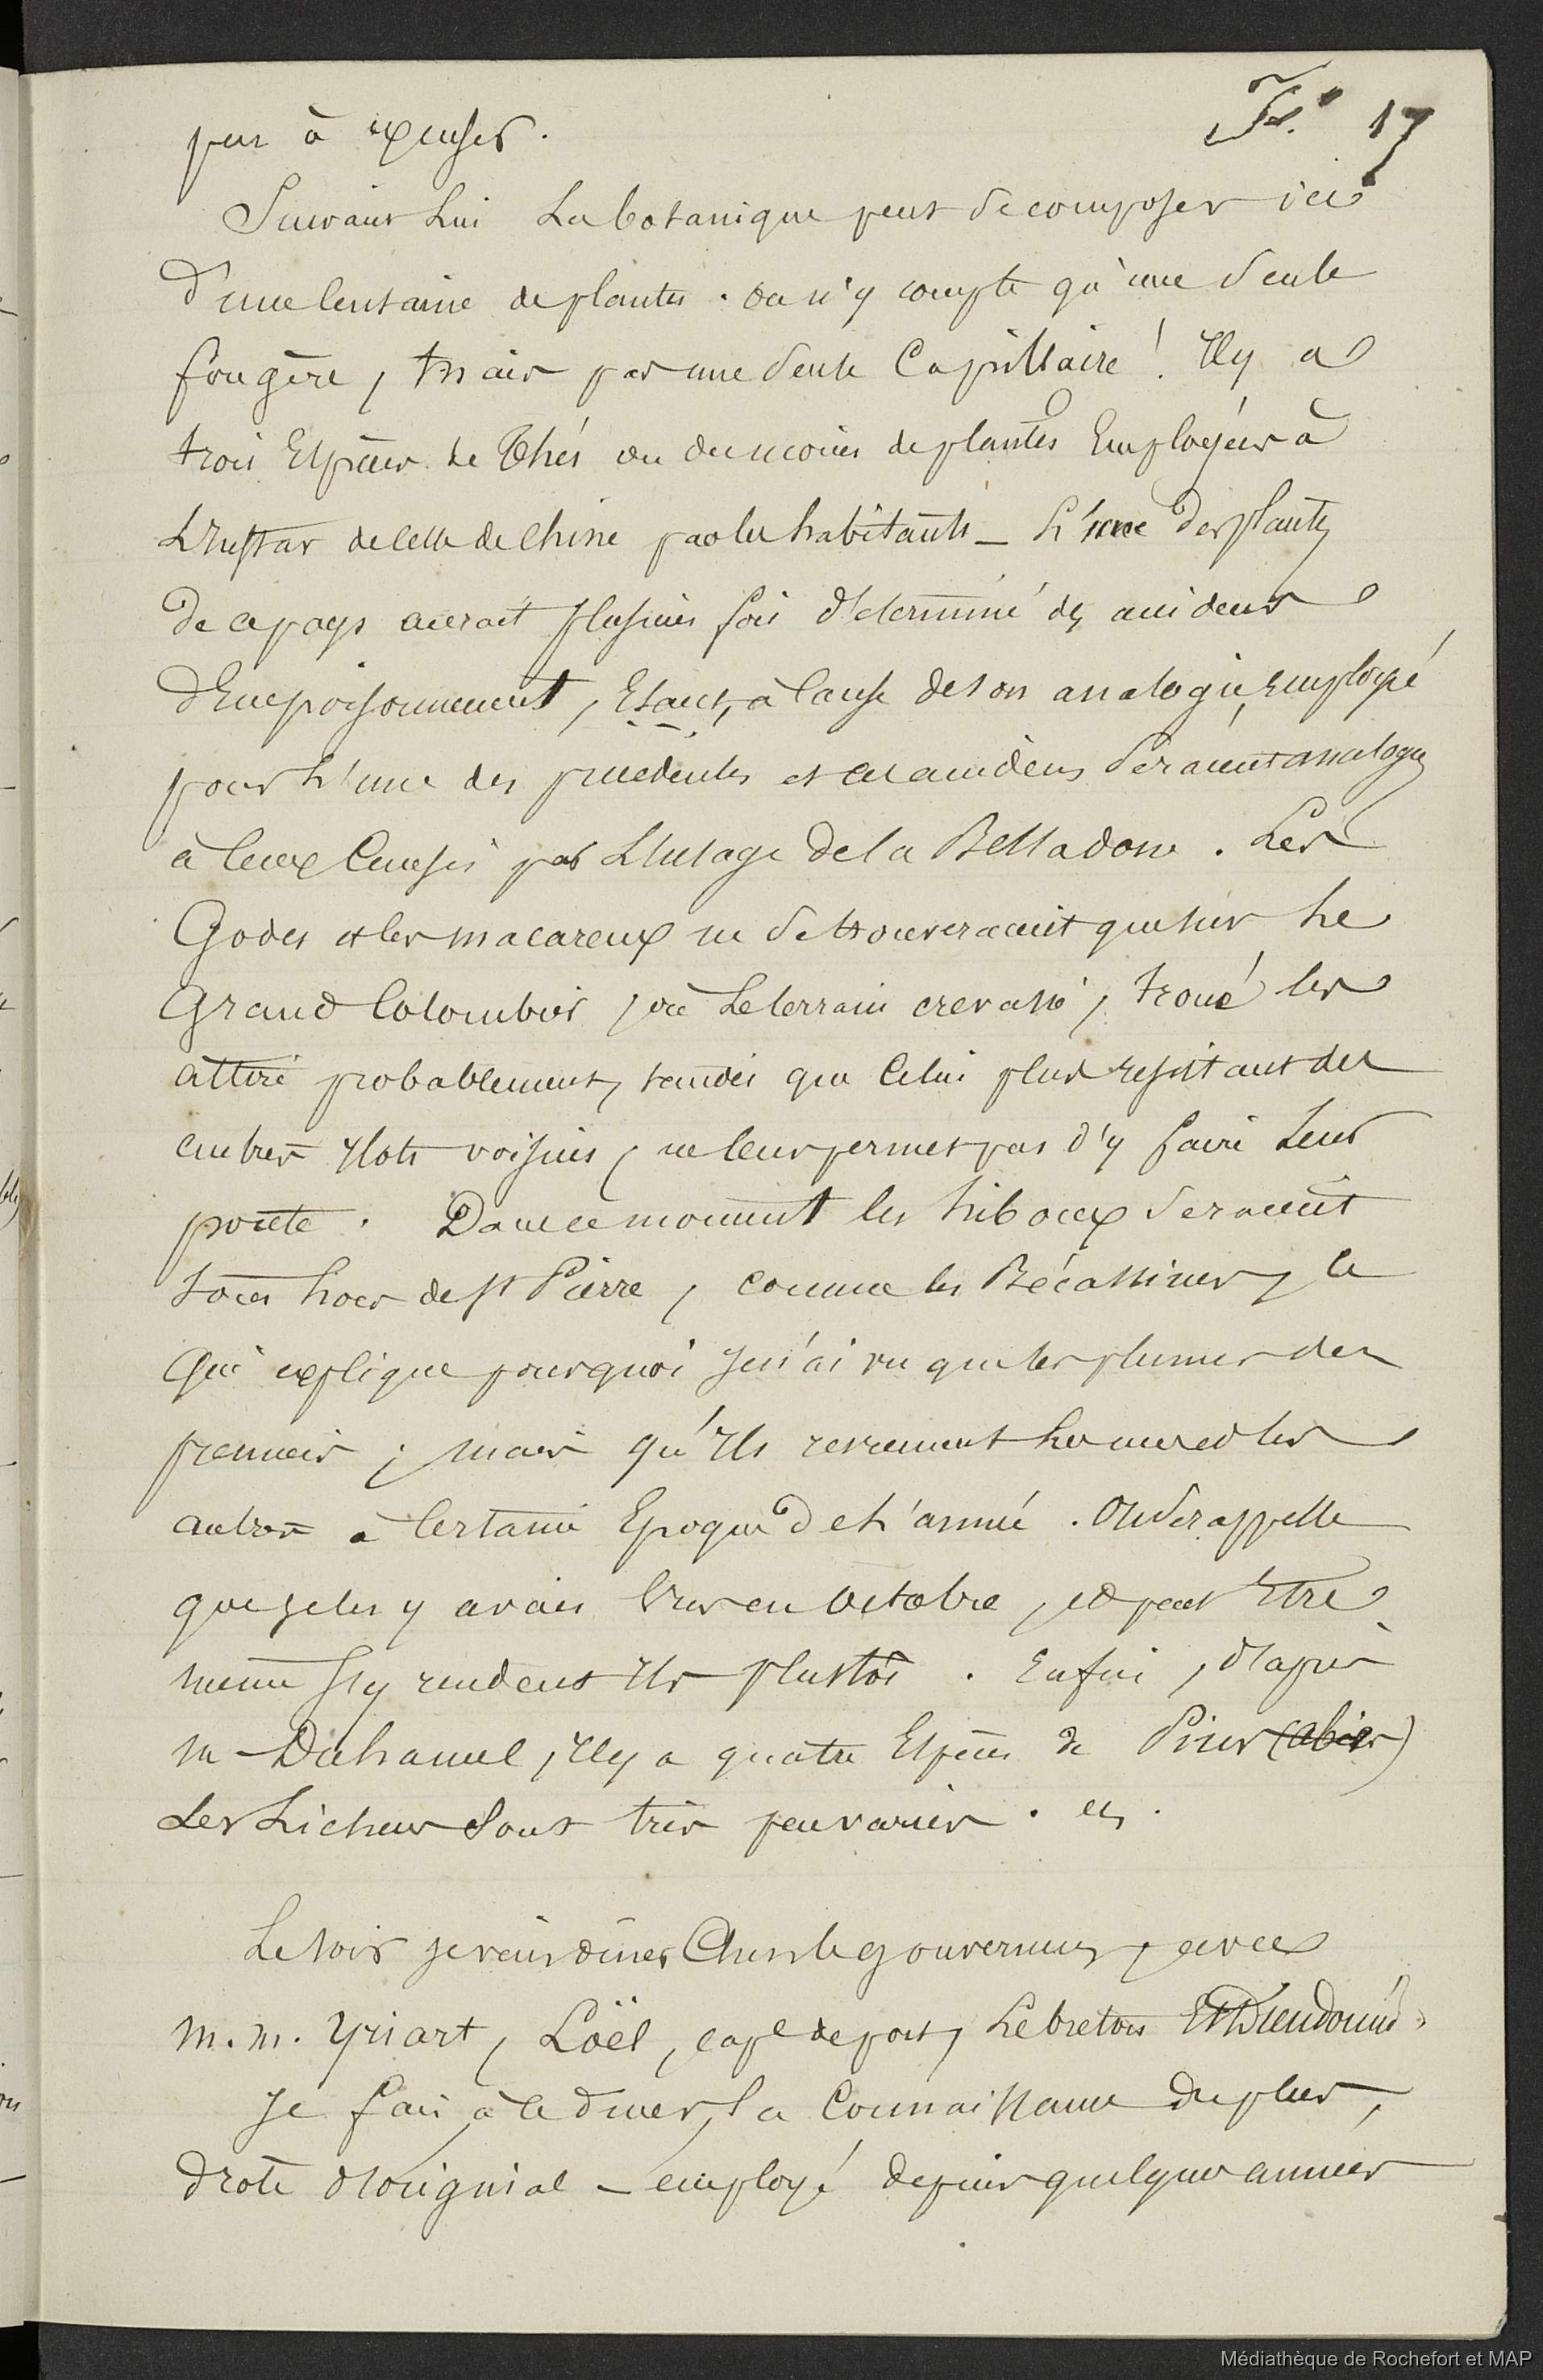 Fo. 17
pas à penser.
Suivant Lui La botanique peut se composer ici
d'une Centaine de plantes. On n'y compte qu'une Seule
fougère, Mais pas une Seule Capillaire ! Il y a
trois Espèces de Thés ou du moins de plantes Employées à
L'Instar de celle de Chine par les habitants _ L'une des plantes
de ce pays aurait plusieurs fois déterminé des accidens
d'Empoisonnement, Etant, à Cause de son analogie, employé
pour L'une des precedentes et ces accidens Seraient analogues
à Ceux Causés par L'Usage de la Belladone. Les
Godes et les macareux ne Se trouveraient que sur Le
Grand Colombier, où Le terrain crevassé, troué les
attire probablement, tandis que Celui plus resistant des
autres Ilots voisins, ne leur permet pas d'y faire Leur
ponte. Dans ce moment les hiboux Seraient
tous hors de St Pierre, comme les Bécassines, Ce
Qui explique pourquoi Je n'ai vu que les plumes des
premiers ; mais qu'Ils reviennent les uns et les
autres à Certaine Epoque de L'année. On Se rappelle
que je les y avais vus en Octobre, et peut Etre
meme s'y rendent Ils plustôt. Enfin, d'après
M Duhamel, Il y a quatre Espèces de Pins (abies)
Les Lichens Sont très peu variés. &.
Le soir je vais diner Chez le gouverneur, avec
M.M. Yriart, Loël, cape de port, Lebreton Et Dieudonné.
Je fais, à ce diner, la Connaissance du plus,
drole d'original _ employé depuis quelques années
Médiathèque de Rochefort et MAP